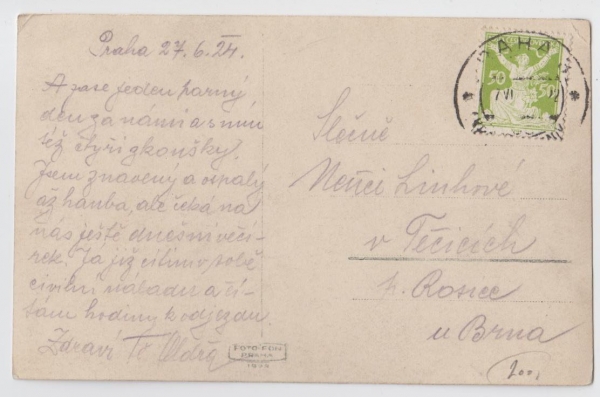 Praha 27.6.24.
A zase jeden parný
den za námi a s ním
též čtyři zkoušky.
Jsem znavený a ospalý
až hanba, ale čeká na
nás ještě dnešní večí-
rek. Já již cítím v sobě
civilní náladu a čí-
tám hodiny k odjezdu.
Zdraví Tě
FOTO-FON
PRAHA
PRAHA
50
Slečně
Linhové
v Tečicích
p. Rosice
u Brna